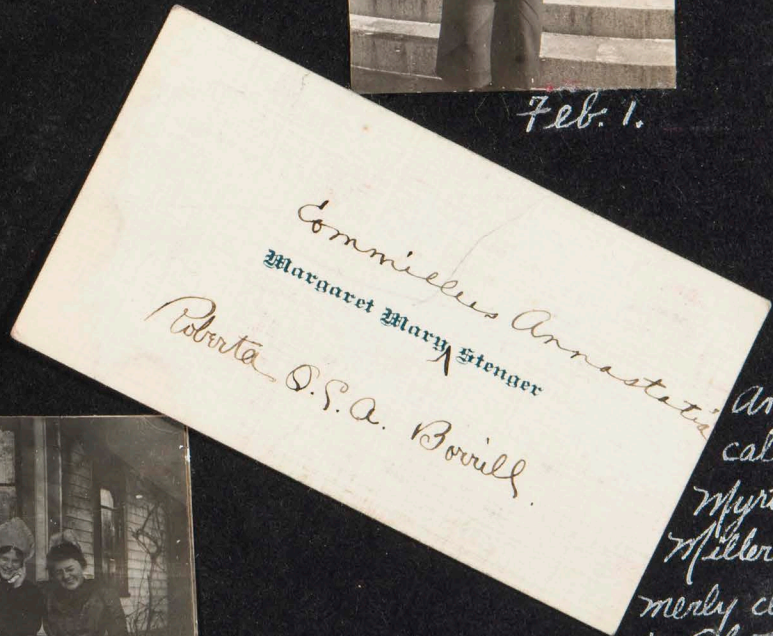 Feb. 1.
Commillus Annastatia
Margaret Mary ^ Stenger
Roberta S.S.A. Borrill.
Miller
merly